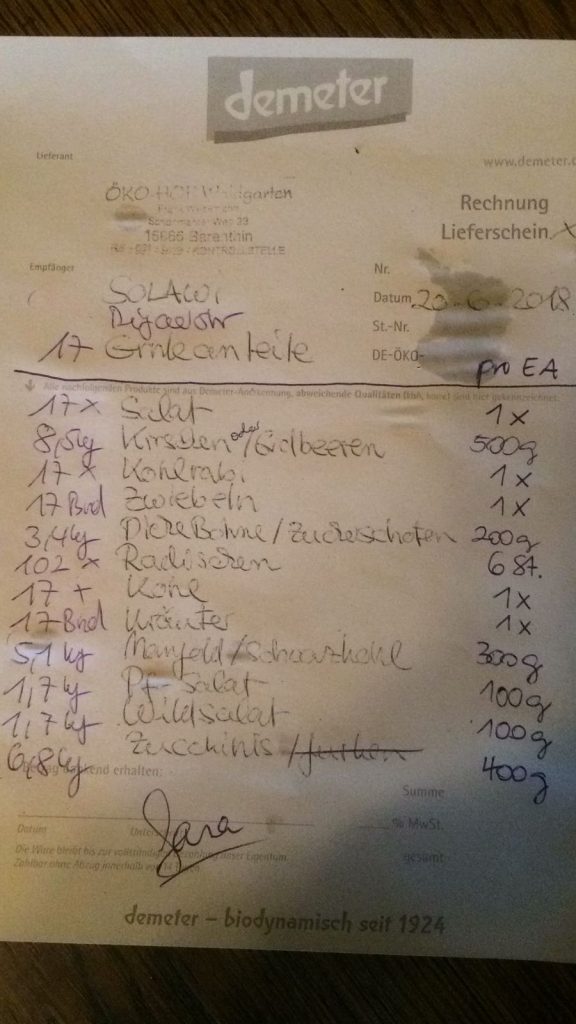 demeter
Lieferant
www.demeter.d
ÖKO-HOF Waldgarten
Rechnung
16866 Barenthin
Lieferschein x
KONTROLLSTELLE
Empfänger
Nr.
SOLAWI
Datum 20-6-2018
St.-Nr.
17 Ernteanteile
DE-ÖKO-
pro EA
Alle nachfolgenden Produkte sind aus Demeter-Anerkennung, abweichende Qualitäten sind hier gekennzeichnet.
17 x Salat 1x
8,5kg Kirschen oder/Erdbeeren 500g
17 x Kohlrabi 1x
17 Bnd Zwiebeln 1x
3,4kg Dicke Bohne/Zuckerschoten 200g
102 x Radischen 6 St.
17 + Kohl 1x
17 Bnd Kräuter 1x
5,1 kg Mangold/Schwarzkohl 300g
1,7 kg Pf-Salat 100g
1,7 kg Wildsalat 100g
6,8 kg Zucchinis /Gurken 400g
dankend erhalten:
Summe
Datum
% MwSt.
Die Ware bleibt bis zur vollständigen Bezahlung unser Eigentum.
gesamt
Zahlbar ohne Abzug innerhalb
demeter – biodynamisch seit 1924